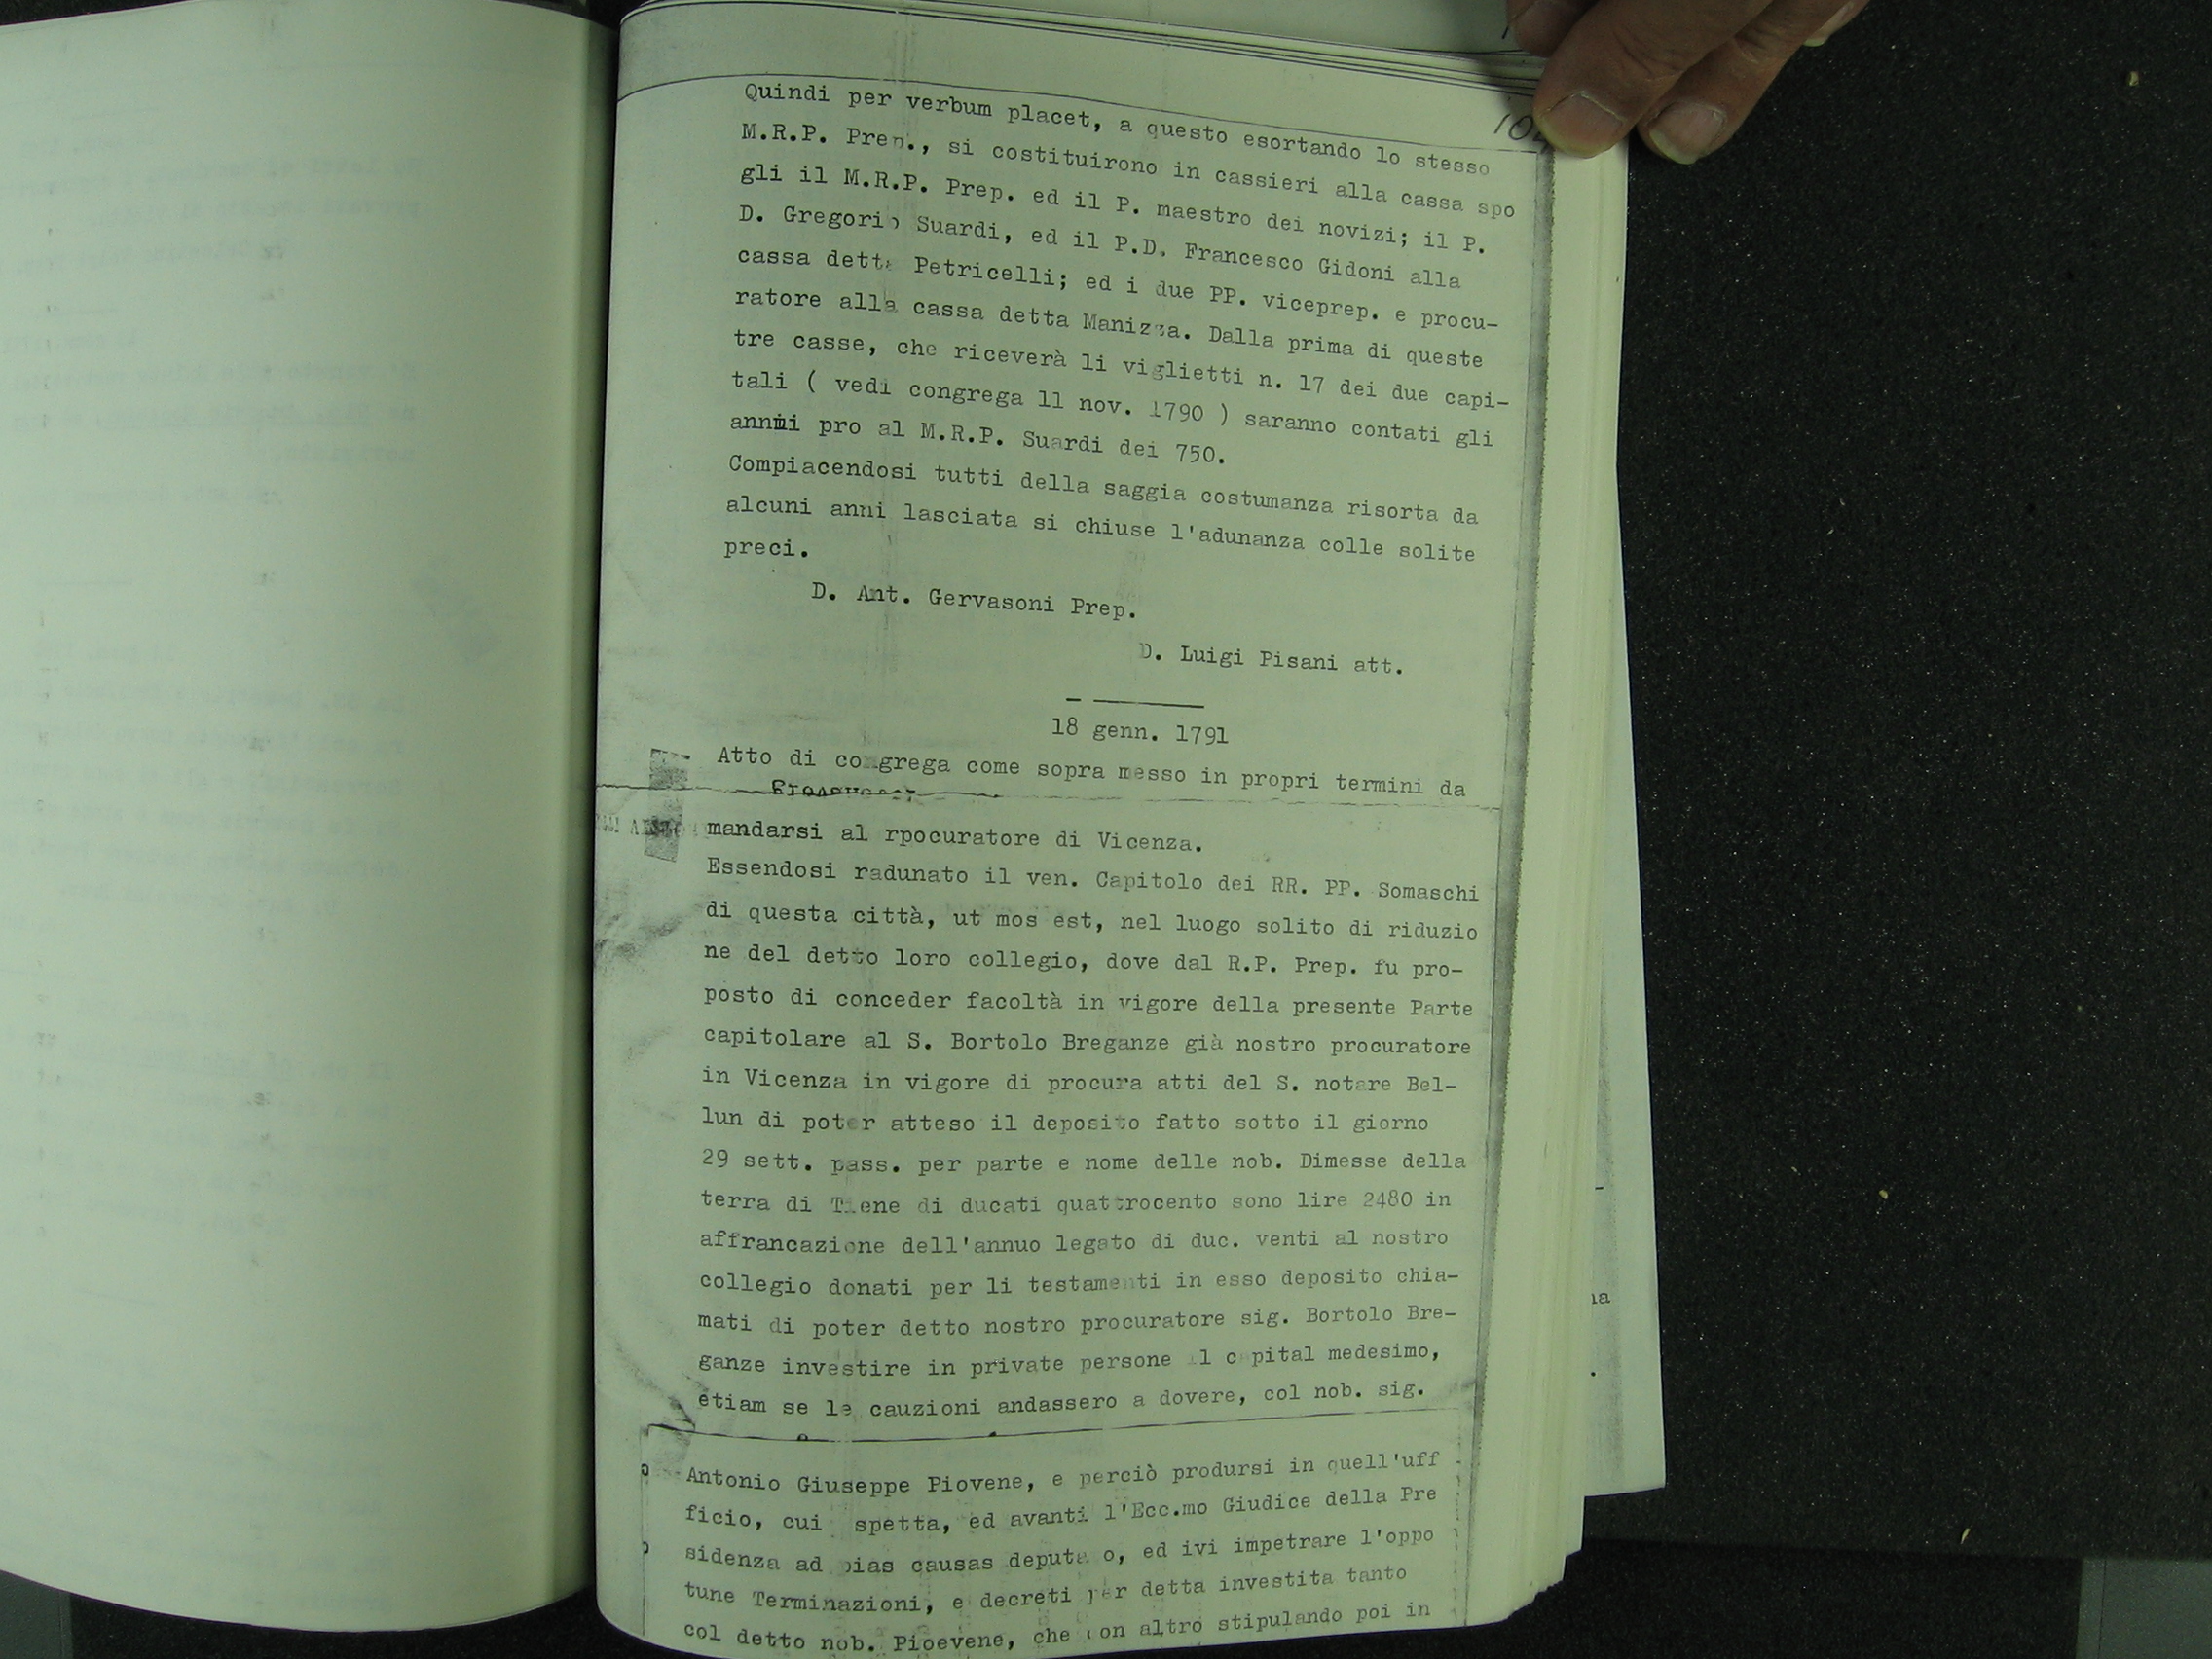 Quindi per verbum placet, a questo esortando lo stesso
M.R.P. Prep., si costituirono in cassieri alla cassa spo
gli il M.R.P. Prep. ed il P. maestro dei novizi; il P.
D. Gregorio Suardi, ed il P.D. Francesco Gidoni alla
cassa detta Petricelli; ed i due PP. viceprep. e procu-
ratore alla cassa detta Manizza. Dalla prima di queste
tre casse, che riceverà li viglietti n. 17 dei due capi-
tali ( vedi congrega 11 nov. 1790 ) saranno contati gli
annui pro al M.R.P. Suardi dei 750.
Compiacendosi tutti della saggia costumanza risorta da
alcuni anni lasciata si chiuse l'adunanza colle solite
preci.
D. Ant. Gervasoni Prep.
D. Luigi Pisani att.
18 genn. 1791
Atto di congrega come sopra messo in propri termini da
mandarsi al rpocuratore di Vicenza.
Essendosi radunato il ven. Capitolo dei RR. PP. Somaschi
di questa città, ut mos est, nel luogo solito di riduzio
ne del detto loro collegio, dove dal R.P. Prep. fu pro-
posto di conceder facoltà in vigore della presente Parte
capitolare al S. Bortolo Breganze già nostro procuratore
in Vicenza in vigore di procura atti del S. notare Bel-
lun di poter atteso il deposito fatto sotto il giorno
29 sett. pass. per parte e nome delle nob. Dimesse della
terra di Tiene di ducati quattrocento sono lire 2480 in
affrancazione dell'annuo legato di duc. venti al nostro
collegio donati per li testamenti in esso deposito chia-
mati di poter detto nostro procuratore sig. Bortolo Bre-
ganze investire in private persone il capital medesimo,
etiam se le cauzioni andassero a dovere, col nob. sig.
Antonio Giuseppe Piovene, e perciò prodursi in quell'uff
ficio, cui spetta, ed avanti l'Ecc.mo Giudice della Pre
sidenza ad pias causas deputato, ed ivi impetrare l'oppo
tune Terminazioni, e decreti per detta investita tanto
col detto nob. Pioevene, che con altro stipulando poi in